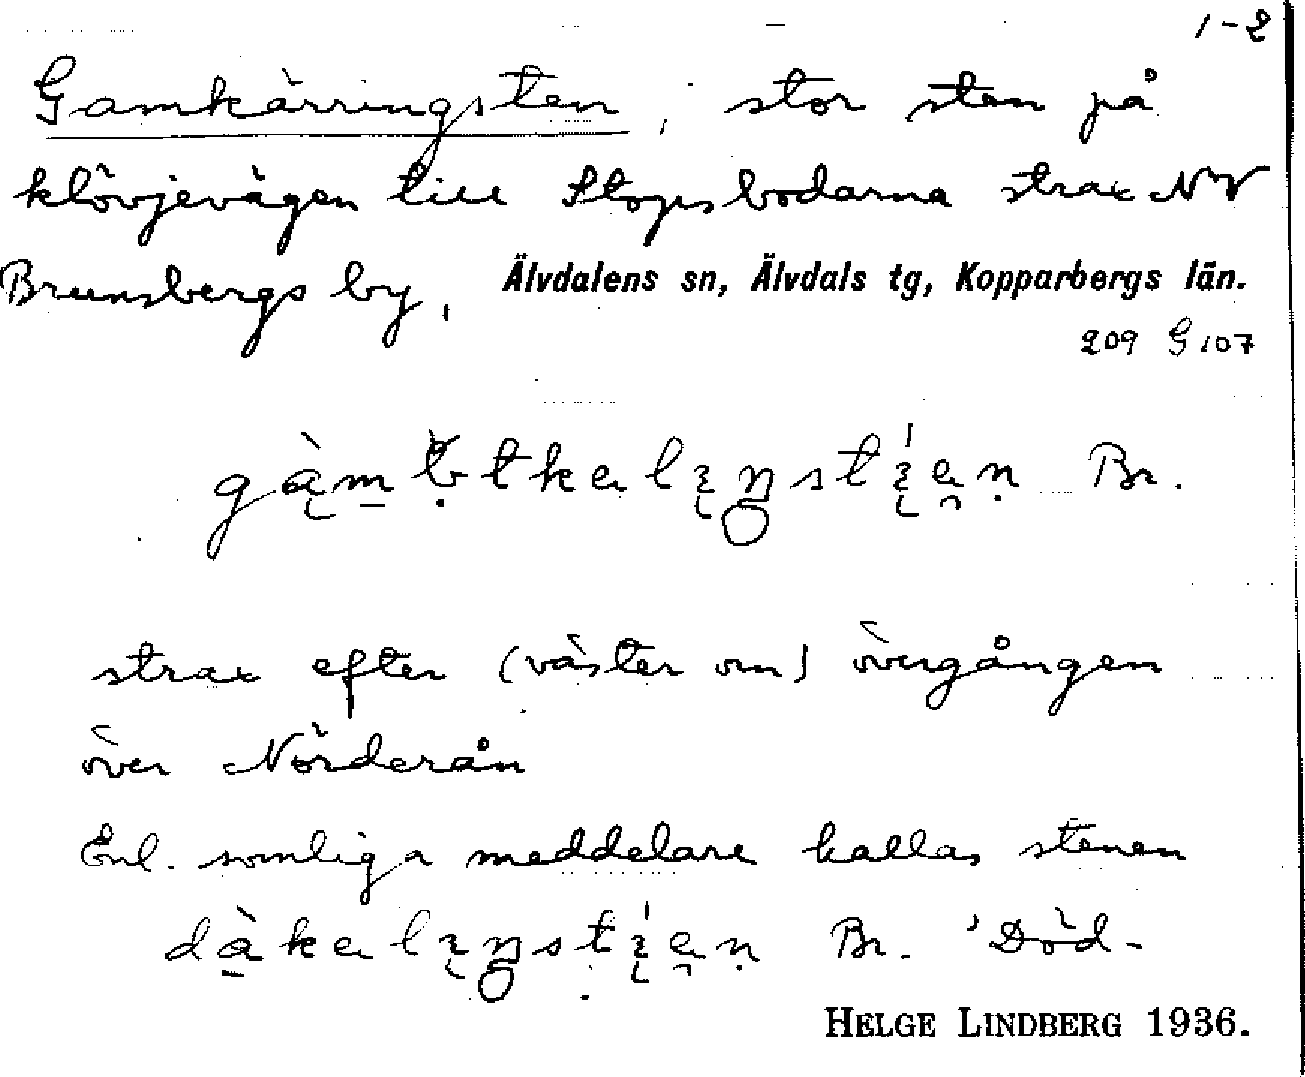 1-2
Gamkärringsten, stor sten på
klövjevägen till Stopisbodarna strax NV
Brunsbergs by, Älvdalens sn, Älvdals tg, Kopparbergs län.
209 G 107
Br.
strax efter (väster om) övergången
över Nörderån
Enl. somliga meddelare kallas stenen
Br. 'Död-
HELGE LINDBERG 1936.